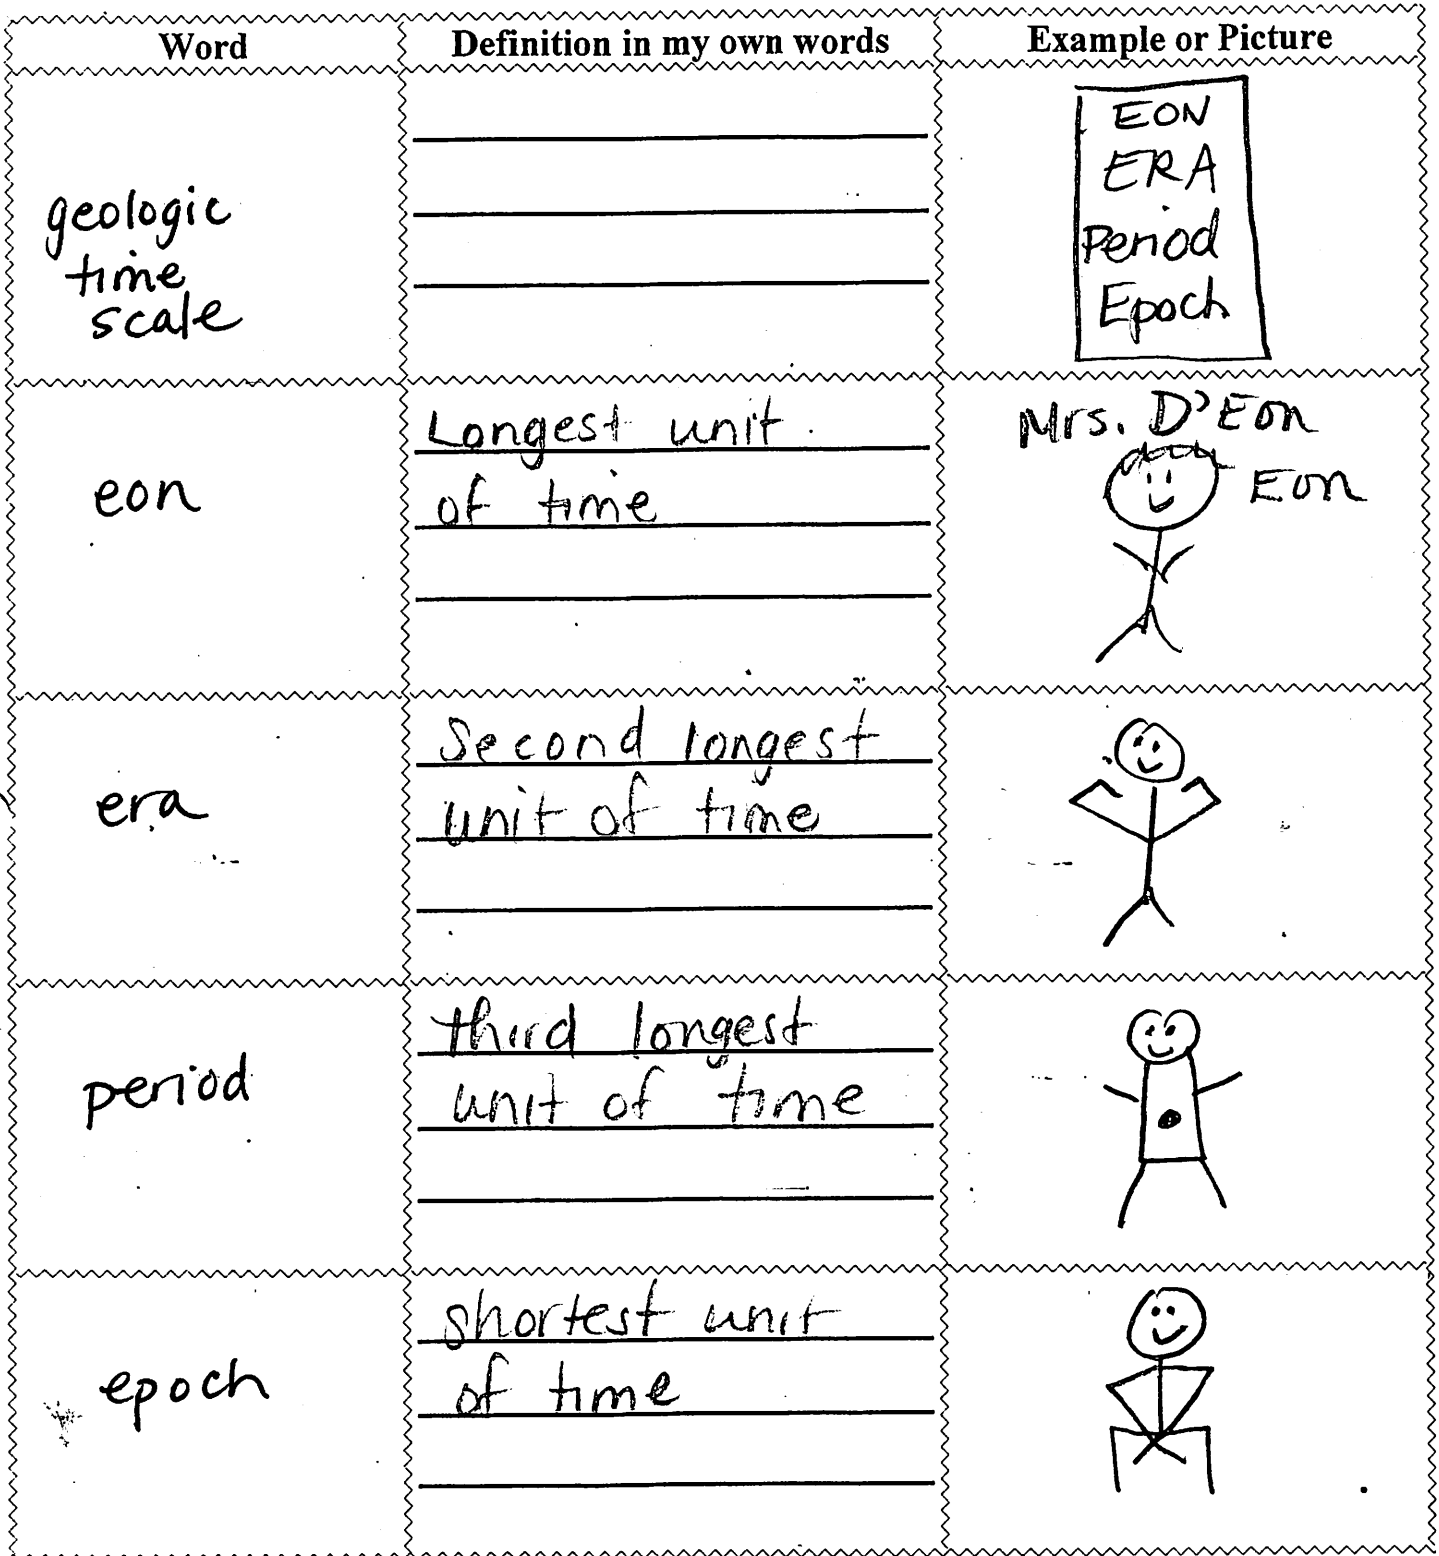 Word
Definition in my own words
Example or Picture
geologic
time
scale
EON
ERA
Period
Epoch
eon
Longest unit
of time
Mrs. D'Eon
Eon
era
Second longest
unit of time
period
third longest
unit of time
epoch
shortest unit
of time